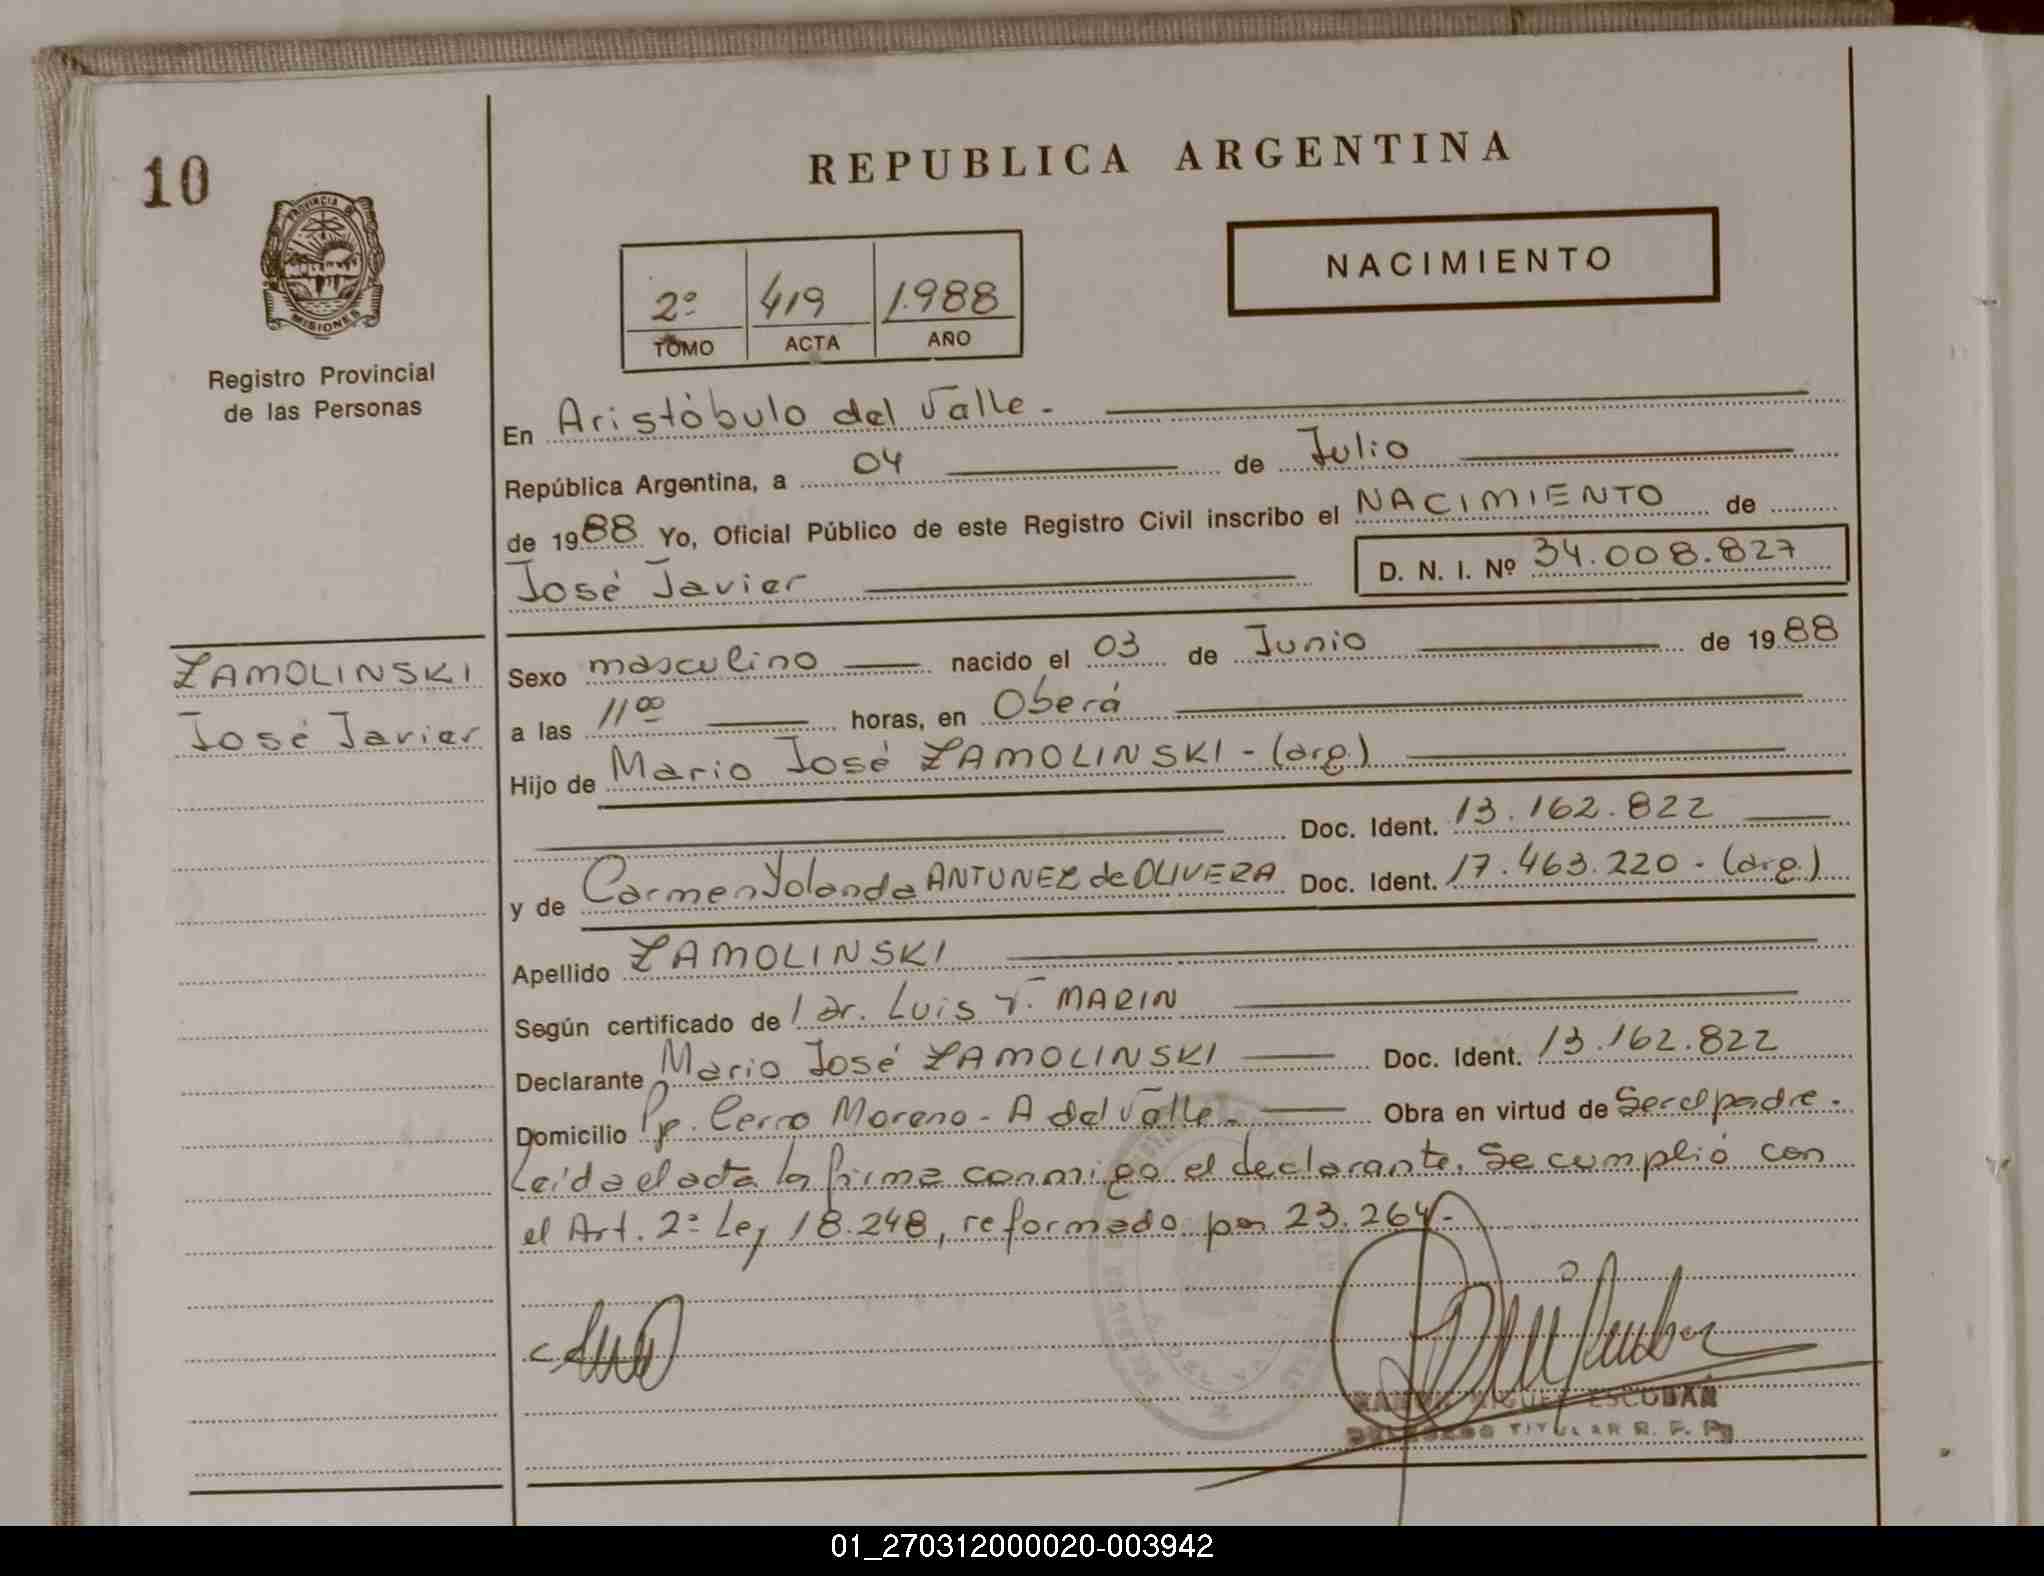 10
REPUBLICA ARGENTINA
PROVINCIA DE
MISIONES
NACIMIENTO
2º 419 1.988
TOMO ACTA AÑO
Registro Provincial
de las Personas
En Aristóbulo del Valle.-
República Argentina, a 04 de Julio
de 1988 Yo, Oficial Público de este Registro Civil inscribo el NACIMIENTO de
José Javier D. N. I. Nº 34.008.827
ZAMOLINSKI
José Javier
Sexo masculino nacido el 03 de Junio de 1988
a las 11 00 horas, en Oberá
Hijo de Mario José ZAMOLINSKI - (arg.)
Doc. Ident. 13.162.822
y de Carmen Yolanda ANTUNEZ de OLIVERA Doc. Ident. 17.463.220 - (arg.)
Apellido ZAMOLINSKI
Según certificado de dr. Luis V. MARIN
Declarante Mario José ZAMOLINSKI Doc. Ident. 13.162.822
Domicilio Cerro Moreno - A del Valle. Obra en virtud de Ser el padre.
Leída el acta la firma conmigo el declarante. Se cumplió con
el Art. 2º Ley 18.248, reformado por 23.264.-
MIGUEL ESCOBAR
TITULAR R. P. P.
01_270312000020-003942